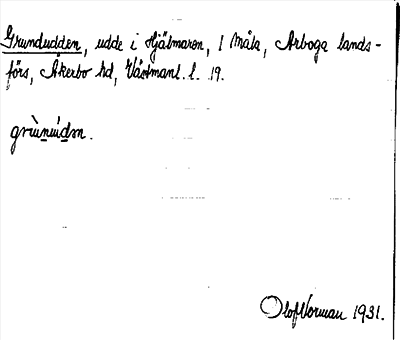 Grundudden, udde i Hjälmaren, 1 Måla, Arboga lands-
förs, Åkerbo hd, Västmanl. l. 19.
grùnúdn.
Olof Norman 1931.